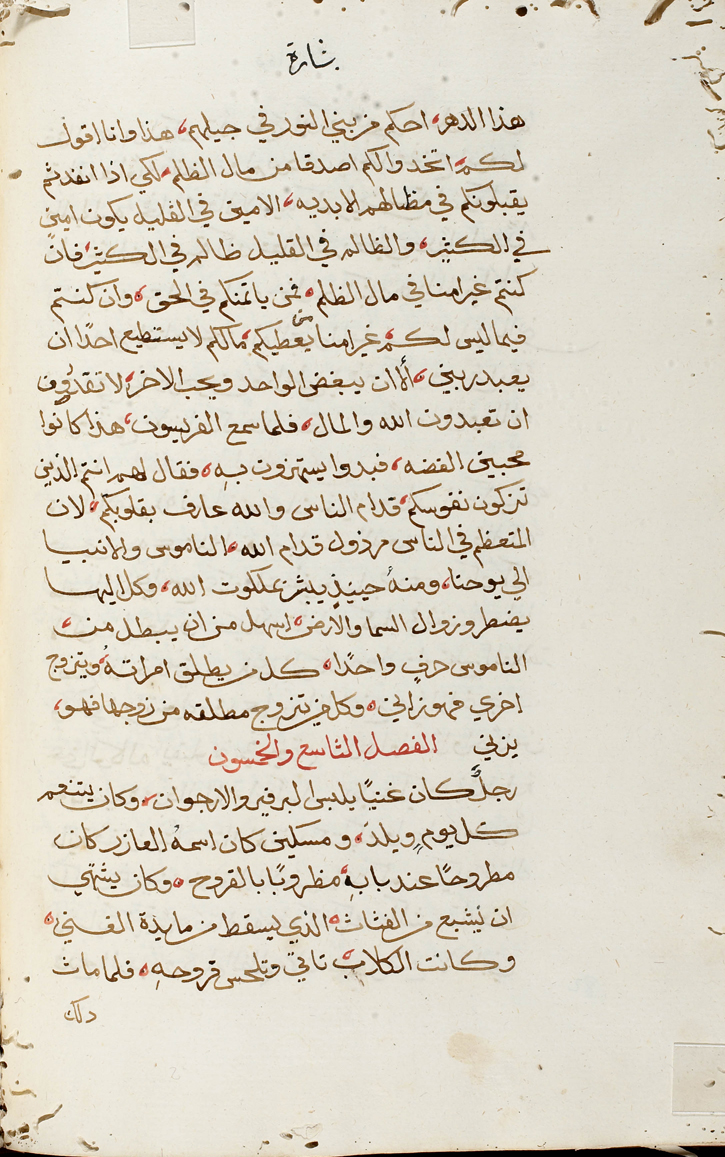 بشارة
هذا الدهر، احكم من بني النور في جيلهم، هذا وانا اقول
لكم، اتخدوا لكم اصدقا من مال الظلم، لكي اذا انفدتم
يقبلونكم في مظالهم الابديه، الامين في القليل يكون امين
في الكثير، والظالم في القليل ظالم في الكثير، فان
كنتم غير امنا في مال الظلم، فمن ياتمنكم في الحق، وان كنتم
فيما ليس لكم، غير امنا من يعطيكم، مالكم لا يستطيع احدًا ان
يعبد ربين، الا ان يبغض الواحد ويحب الاخر، لا تقدرون
ان تعبدون الله والمال، فلما سمع الفريسون، هذا كانوا
محبين الفضه، فبدوا يستهزون به، فقال لهم انتم الذين
تزكون نفوسكم، قدام الناس والله عارف بقلوبكم، لان
المتعظم في الناس مرذول قدام الله، الناموس والانبيا
الي يوحنا، ومنهُ حينيذٍ يبشر بملكوت الله، وكل اليها
يضطر وزوال السما والارض، اسهل من ان يبطل من،
الناموس حرفٍ واحدًا، كل من يطلق امراتهُ، ويتزوج
اخري فهو زاني، وكل من تزوج مطلقه من زوجها فهو،
يزني الفصل التاسع والخمسون
رجلٌ كان غنيًا يلبس البرفير والارجوان، وكان يتنعم
كل يومٍ ويلد، ومسكين كان اسمهُ العازر كان
مطروحًا عند بابهِ، مظروبًا بالقروح، وكان يشتهي
ان يشبع من الفتات، الذي يسقط من مايدة الغني،
وكانت الكلاب تاتي وتلحس قروحهِ، فلما مات
دلك